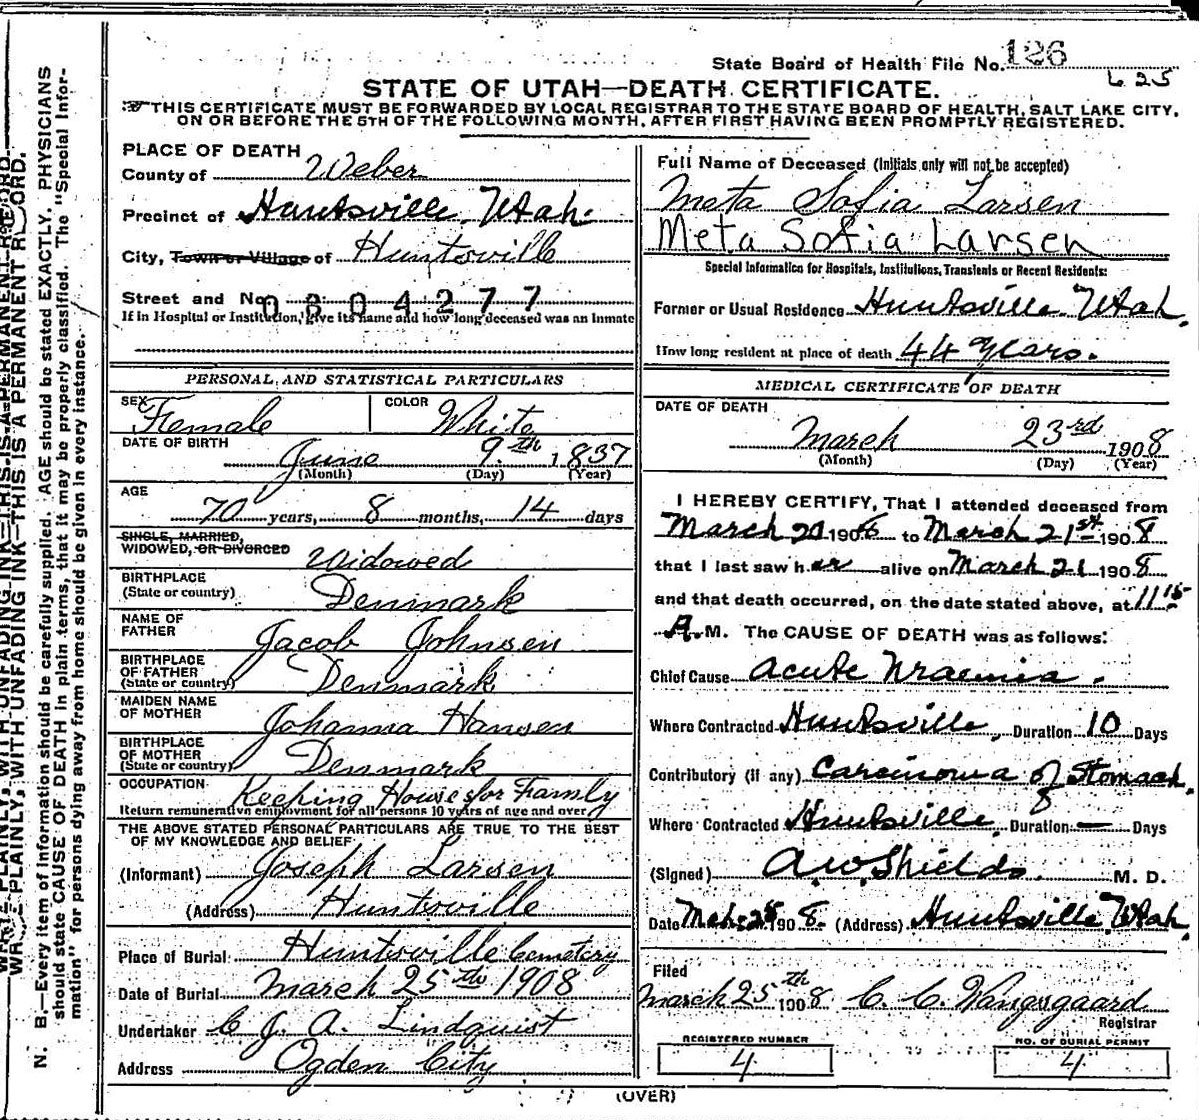 State Board of Health File No. 126
625
STATE OF UTAH—DEATH CERTIFICATE.
THIS CERTIFICATE MUST BE FORWARDED BY LOCAL REGISTRAR TO THE STATE BOARD OF HEALTH, SALT LAKE CITY,
ON OR BEFORE THE 5TH OF THE FOLLOWING MONTH, AFTER FIRST HAVING BEEN PROMPTLY REGISTERED.
PLACE OF DEATH
County of Weber
Precinct of Huntsville Utah.
City, Town or Village of Huntsville
Street and No. 0604277
If in Hospital or Institution, give its name and how long deceased was an Inmate
PERSONAL AND STATISTICAL PARTICULARS
SEX Female COLOR White
DATE OF BIRTH
June 9th 1837
(Month) (Day) (Year)
AGE
70 years, 8 months, 14 days
SINGLE, MARRIED,
WIDOWED, OR DIVORCED Widowed
BIRTHPLACE
(State or country) Denmark
NAME OF
FATHER Jacob Johnsen
BIRTHPLACE
OF FATHER
(State or country) Denmark
MAIDEN NAME
OF MOTHER Johanna Hansen
BIRTHPLACE
OF MOTHER
(State or country) Denmark
OCCUPATION Keeping House for Family
Return remunerative employment for all persons 10 years of age and over
THE ABOVE STATED PERSONAL PARTICULARS ARE TRUE TO THE BEST
OF MY KNOWLEDGE AND BELIEF
(Informant) Joseph Larsen
(Address) Huntsville
Place of Burial Huntsville Cemetery
Date of Burial March 25th 1908
Undertaker C J. A. Lindquist
Address Ogden City
Full Name of Deceased (Initials only will not be accepted)
Meta Sofia Larsen
Meta Sofia Larsen
Special Information for Hospitals, Institutions, Transients or Recent Residents:
Former or Usual Residence Huntsville Utah.
How long resident at place of death 44 years.
MEDICAL CERTIFICATE OF DEATH
DATE OF DEATH
March 23rd 1908
(Month) (Day) (Year)
I HEREBY CERTIFY, That I attended deceased from
March 20 1908 to March 21st 1908
that I last saw her alive on March 21 1908
and that death occurred, on the date stated above, at 11 15
A.M. The CAUSE OF DEATH was as follows:
Chief Cause Acute Uraemia.
Where Contracted Huntsville, Duration 10 Days
Contributory (if any) Carcinoma of Stomach.
Where Contracted Huntsville, Duration — Days
(Signed) A.W. Shields. M. D.
Date Mch 25 1908. (Address) Huntsville, Utah.
Filed
March 25th 1908 C. C. Wangsgaard
Registrar
REGISTERED NUMBER
4
NO. OF BURIAL PERMIT
4
(OVER)
WRITE PLAINLY, WITH UNFADING INK—THIS IS A PERMANENT RECORD.
N. B.—Every item of information should be carefully supplied. AGE should be stated EXACTLY. PHYSICIANS
should state CAUSE OF DEATH in plain terms, that it may be properly classified. The "Special Infor-
mation" for persons dying away from home should be given in every instance.